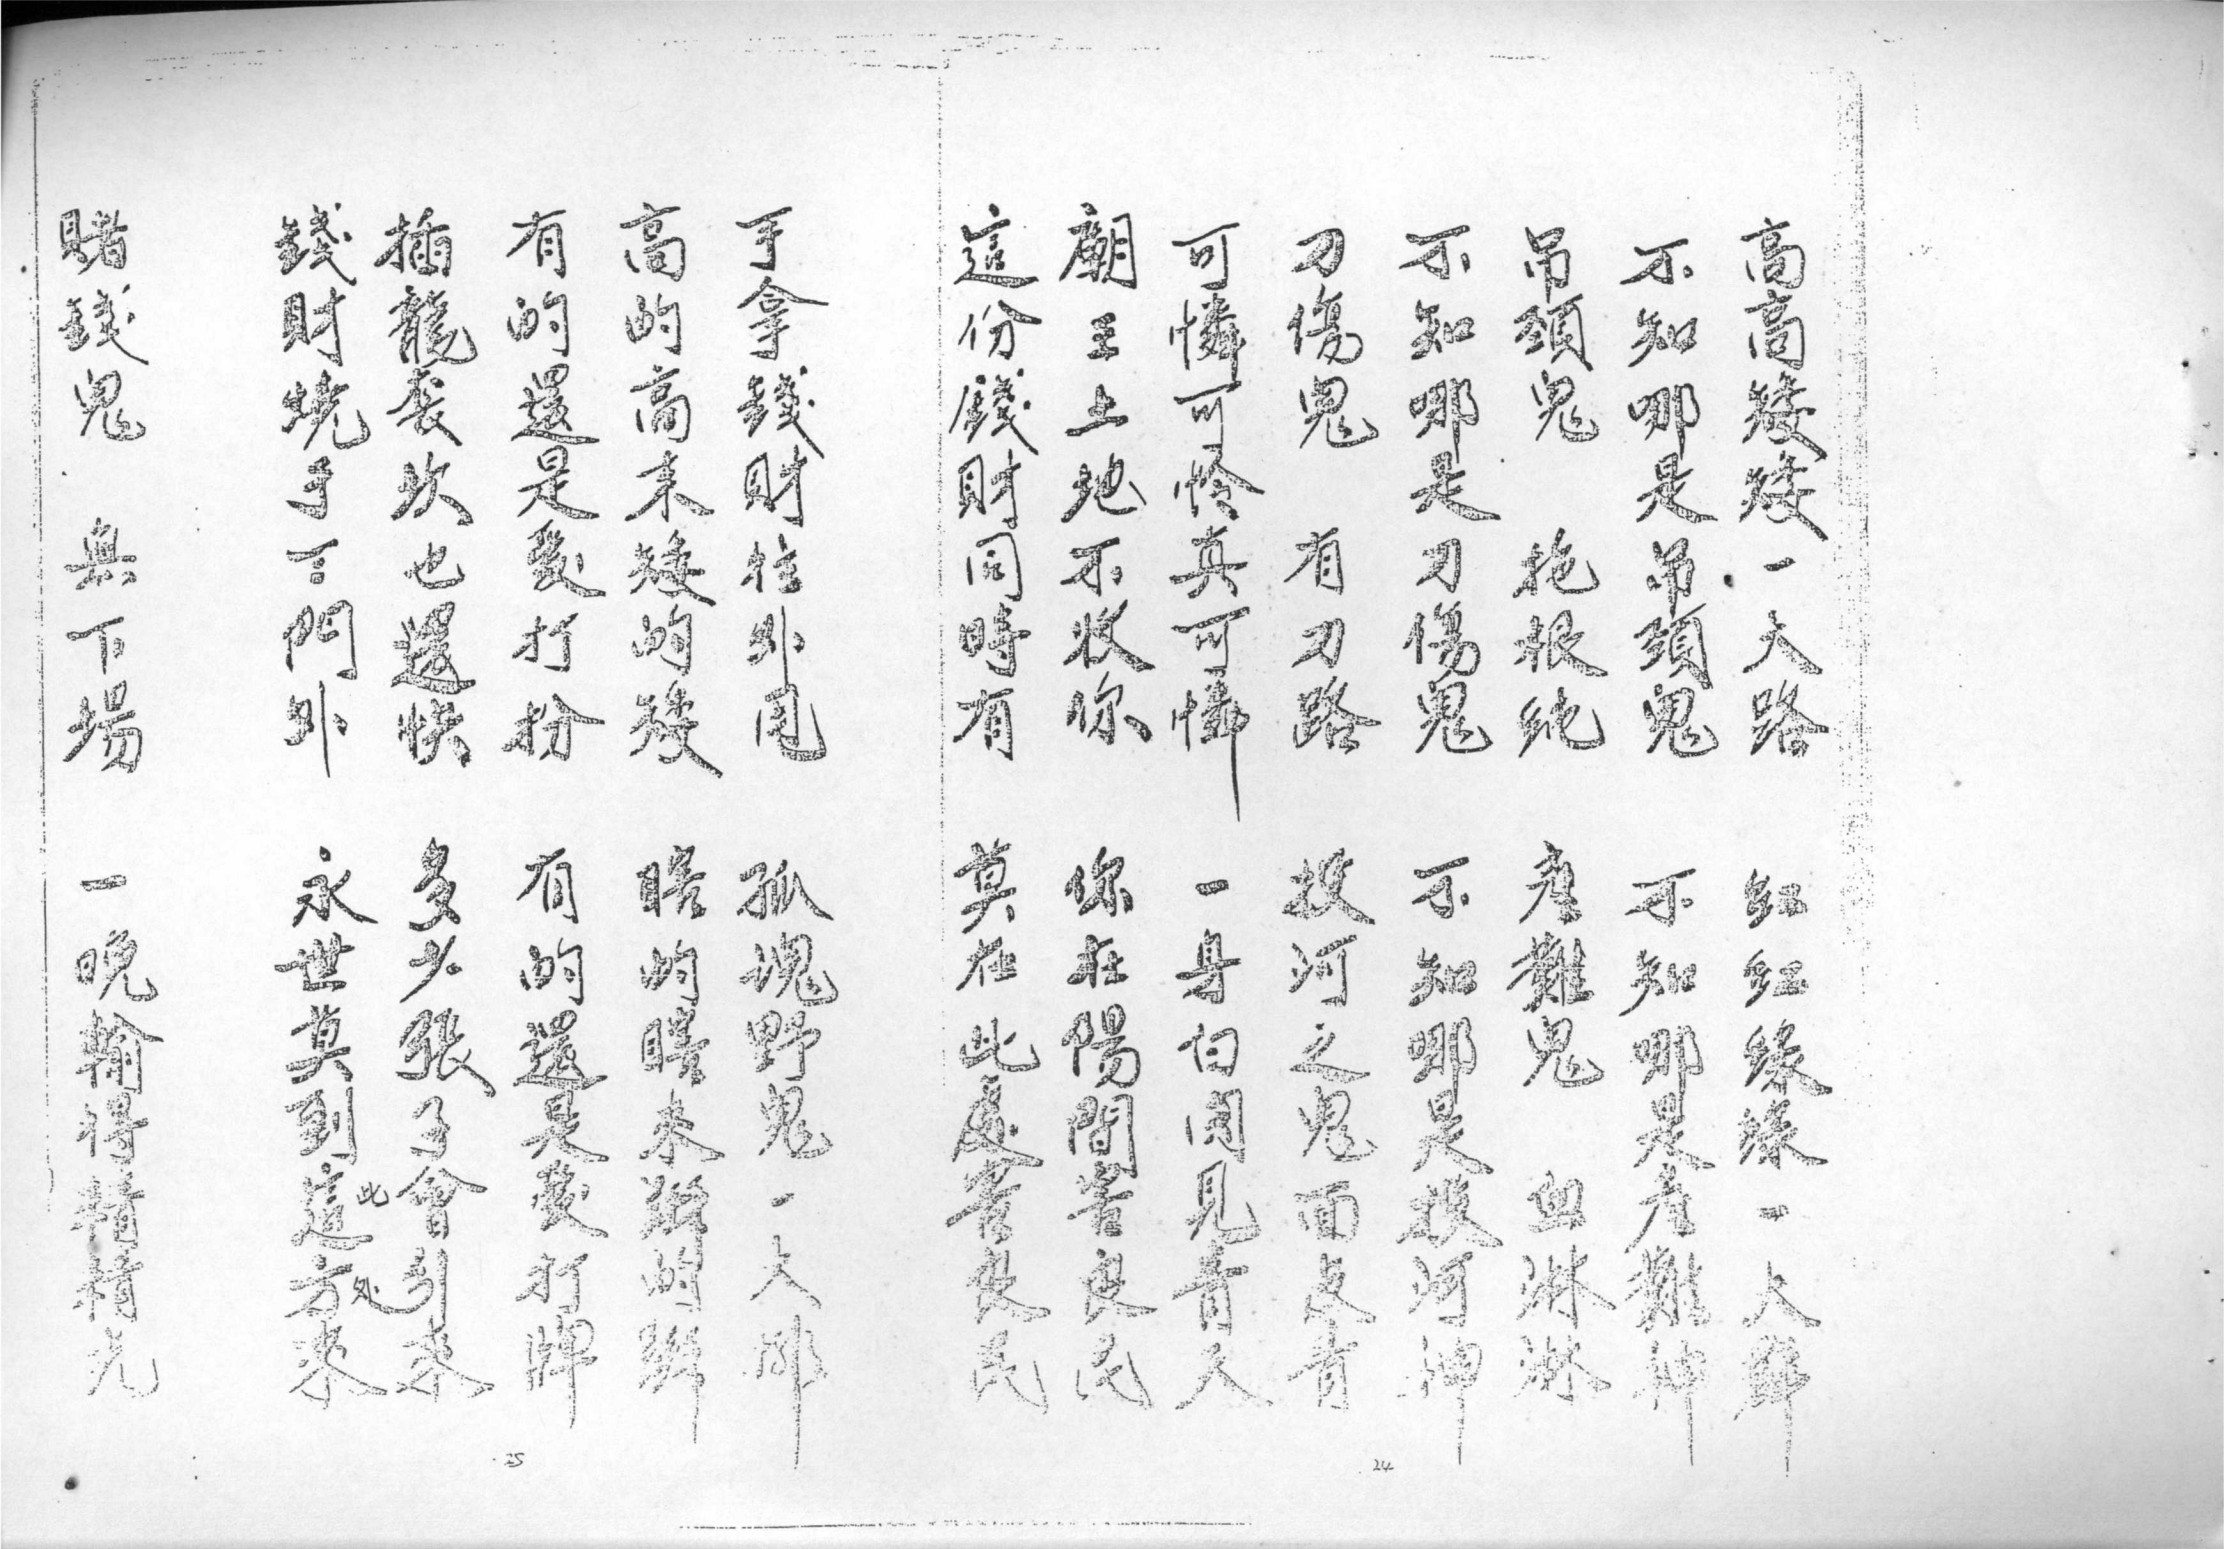 高高矮矮一大路 紅紅綠綠一大群
不知哪是吊頸鬼 不知哪是產難神
吊頸鬼 拖根繩 產難鬼 血淋淋
不知哪是刀傷鬼 不知哪是投河神
刀傷鬼 有刀路 投河之鬼面皮青
可憐可怜真可憐 一身白肉見青天
廟王土地不收你 你在陽間害良民
這份錢財同時有 莫在此處害良民
24
手拿錢財往外甩 孤魂野鬼一大那
高的高來矮的矮 瞎的瞎來跛的跛
有的還是愛打扮 有的還是愛打牌
插龍袞坎也還快 多少張子會引來
錢財燒手丟門外 永世莫到這方來
此處
25
賭錢鬼 無下場 一晚輸得精精光